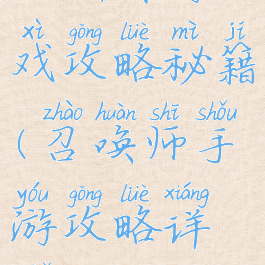 xì gōng lüè mì jí
戏攻略秘籍
zhào huàn shī shǒu
(召唤师手
yóu gōng lüè xiáng
游攻略详